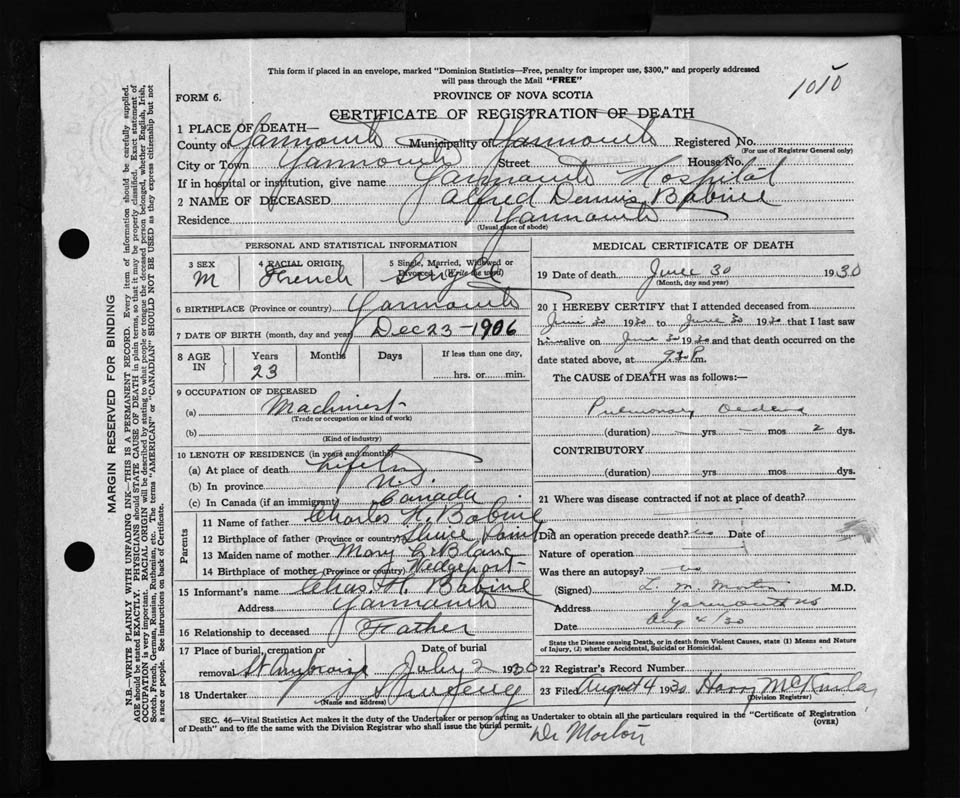 This form if placed in an envelope, marked "Dominion Statistics—Free, penalty for improper use, $300," and properly addressed
will pass through the Mail "FREE"
1010
FORM 6.
PROVINCE OF NOVA SCOTIA
CERTIFICATE OF REGISTRATION OF DEATH
1 PLACE OF DEATH—
County of Yarmouth Municipality of Yarmouth Registered No.
(For use of Registrar General only)
City or Town Yarmouth Street House No.
If in hospital or institution, give name Yarmouth Hospital
2 NAME OF DECEASED Alfred Dennis Babine
Residence Yarmouth
(Usual place of abode)
PERSONAL AND STATISTICAL INFORMATION
3 SEX 4 RACIAL ORIGIN 5 Single, Married, Widowed or Divorced (Write the word)
M French Single
6 BIRTHPLACE (Province or country) Yarmouth
7 DATE OF BIRTH (month, day and year) Dec 23 - 1906
8 AGE IN Years Months Days If less than one day,
23 hrs. or min.
9 OCCUPATION OF DECEASED
(a) Machinest
(Trade or occupation or kind of work)
(b)
(Kind of industry)
10 LENGTH OF RESIDENCE (in years and months)
(a) At place of death Lifetime
(b) In province N.S.
(c) In Canada (if an immigrant) Canada
Parents
11 Name of father Charles H. Babine
12 Birthplace of father (Province or country) Sluice Point
13 Maiden name of mother Mary LeBlanc
14 Birthplace of mother (Province or country) Wedgeport
15 Informant's name Chas. H. Babine
Address Yarmouth
16 Relationship to deceased Father
17 Place of burial, cremation or Date of burial
removal St Ambroise July 2 1930
18 Undertaker Sweeney
(Name and address)
MEDICAL CERTIFICATE OF DEATH
19 Date of death June 30 1930
(Month, day and year)
20 I HEREBY CERTIFY that I attended deceased from
June 30 1930 to June 30 1930 that I last saw
him alive on June 30 1930 and that death occurred on the
date stated above, at 9 P.m.
The CAUSE of DEATH was as follows:—
Pulmonary Oedema
(duration) — yrs — mos 2 dys.
CONTRIBUTORY
(duration) yrs. mos. dys.
21 Where was disease contracted if not at place of death?
Did an operation precede death? no Date of
Nature of operation
Was there an autopsy? no
(Signed) L. M. Morton M.D.
Address Yarmouth NS
Date Aug 4/30
State the Disease causing Death, or in death from Violent Causes, state (1) Means and Nature
of Injury, (2) whether Accidental, Suicidal or Homicidal.
22 Registrar's Record Number
23 Filed August 4 1930 Harry
(Division Registrar)
SEC. 46—Vital Statistics Act makes it the duty of the Undertaker or person acting as Undertaker to obtain all the particulars required in the "Certificate of Registration
of Death" and to file the same with the Division Registrar who shall issue the burial permit.
(OVER)
Dr Morton
MARGIN RESERVED FOR BINDING
N.B.—WRITE PLAINLY WITH UNFADING INK—THIS IS A PERMANENT RECORD. Every item of information should be carefully supplied.
AGE should be stated EXACTLY. PHYSICIANS should STATE CAUSE OF DEATH in plain terms, so that it may be properly classified. Exact statement of
OCCUPATION is very important. RACIAL ORIGIN will be described by stating to what people or tongue the deceased person belonged, whether English, Irish,
Scotch, French, German, Russian, Ruthenian, etc. The terms "AMERICAN" or "CANADIAN" SHOULD NOT BE USED as they express citizenship but not
a race or people. See instructions on back of Certificate.